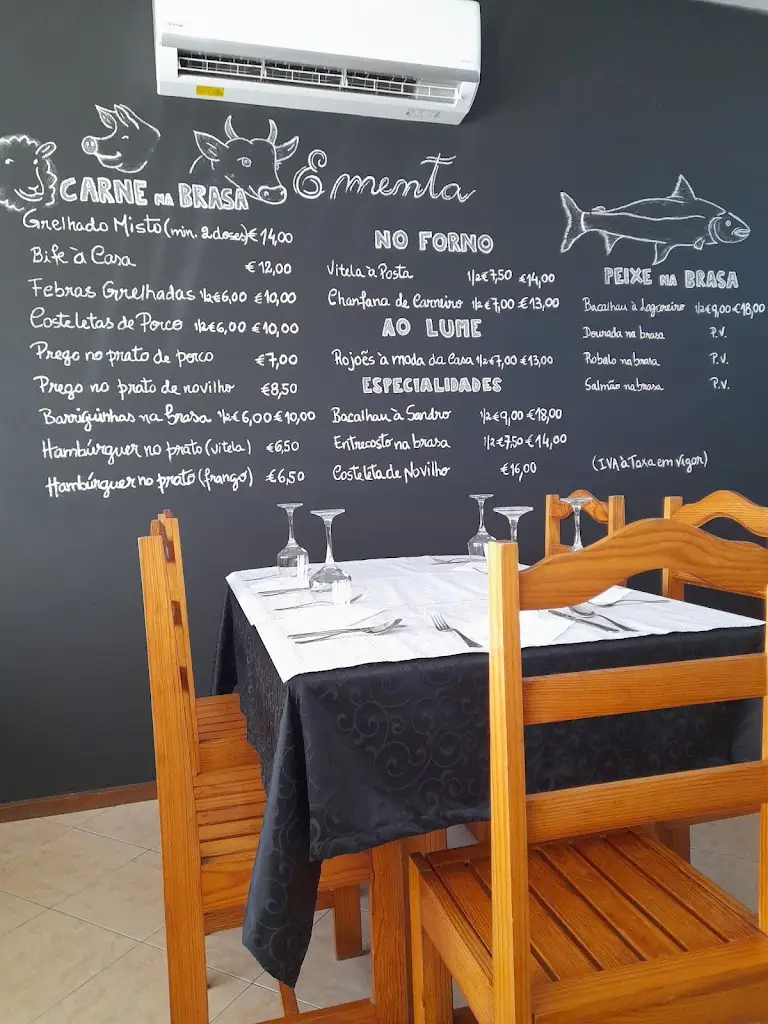 Ementa
CARNE NA BRASA
Grelhado Misto (min. 2 doses) € 14,00
Bife à Casa € 12,00
Febras Grelhadas 1/2 € 6,00 € 10,00
Costeletas de Porco 1/2 € 6,00 € 10,00
Prego no prato de porco € 7,00
Prego no prato de novilho € 8,50
Barriguinhas na brasa 1/2 € 6,00 € 10,00
Hambúrguer no prato (vitela) € 6,50
Hambúrguer no prato (frango) € 6,50
NO FORNO
Vitela à Posta 1/2 € 7,50 € 14,00
Chanfana de Carneiro 1/2 € 7,00 € 13,00
AO LUME
Rojões à moda da casa 1/2 € 7,00 € 13,00
ESPECIALIDADES
Bacalhau à Sandro 1/2 € 9,00 € 18,00
Entrecosto na brasa 1/2 € 7,50 € 14,00
Costeleta de Novilho € 16,00
PEIXE NA BRASA
Bacalhau à Lagareiro 1/2 € 9,00 € 18,00
Dourada na brasa P.V.
Robalo na brasa P.V.
Salmão na brasa P.V.
(IVA à Taxa em vigor)